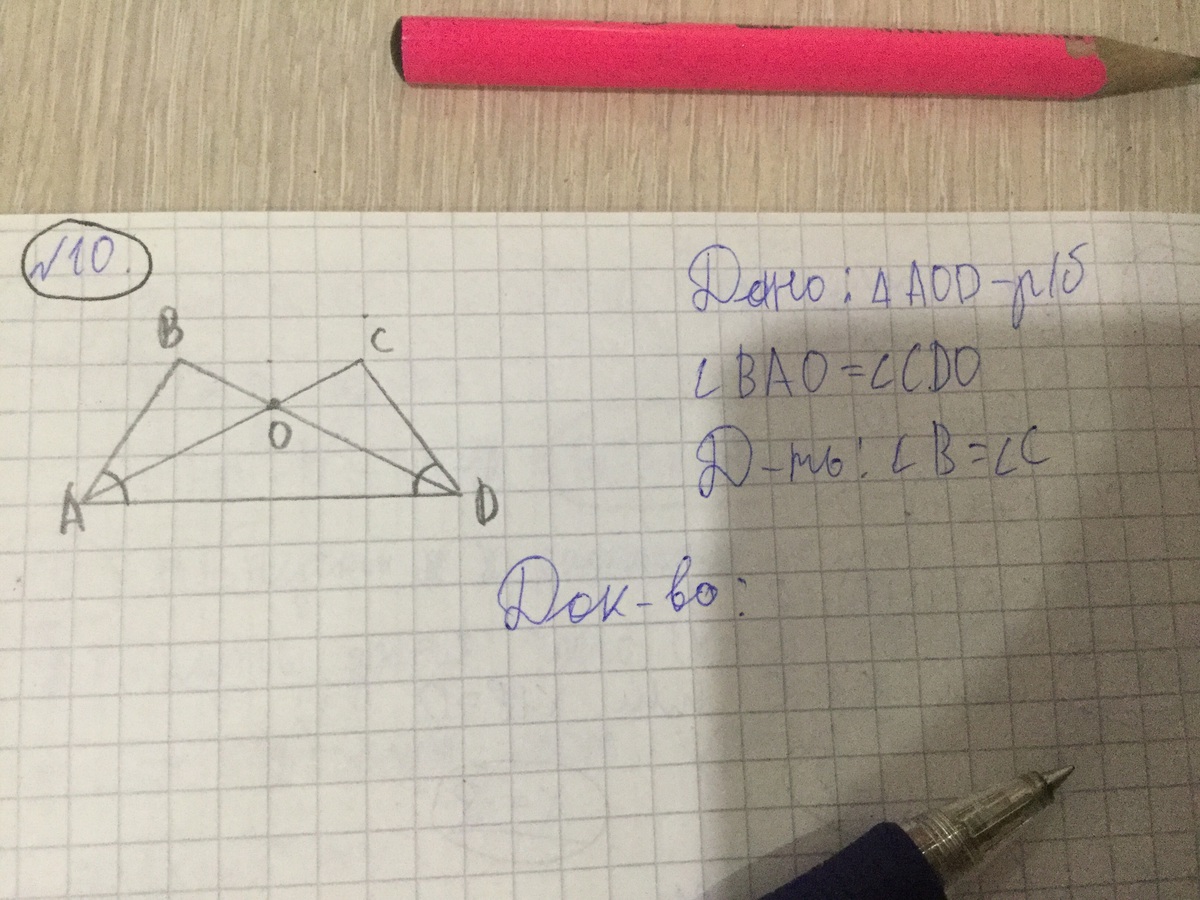 №10.
B C
O
A D
Дано: Δ AOD - р/б
∠BAO = ∠CDO
Д-ть: ∠B = ∠C
Док-во: